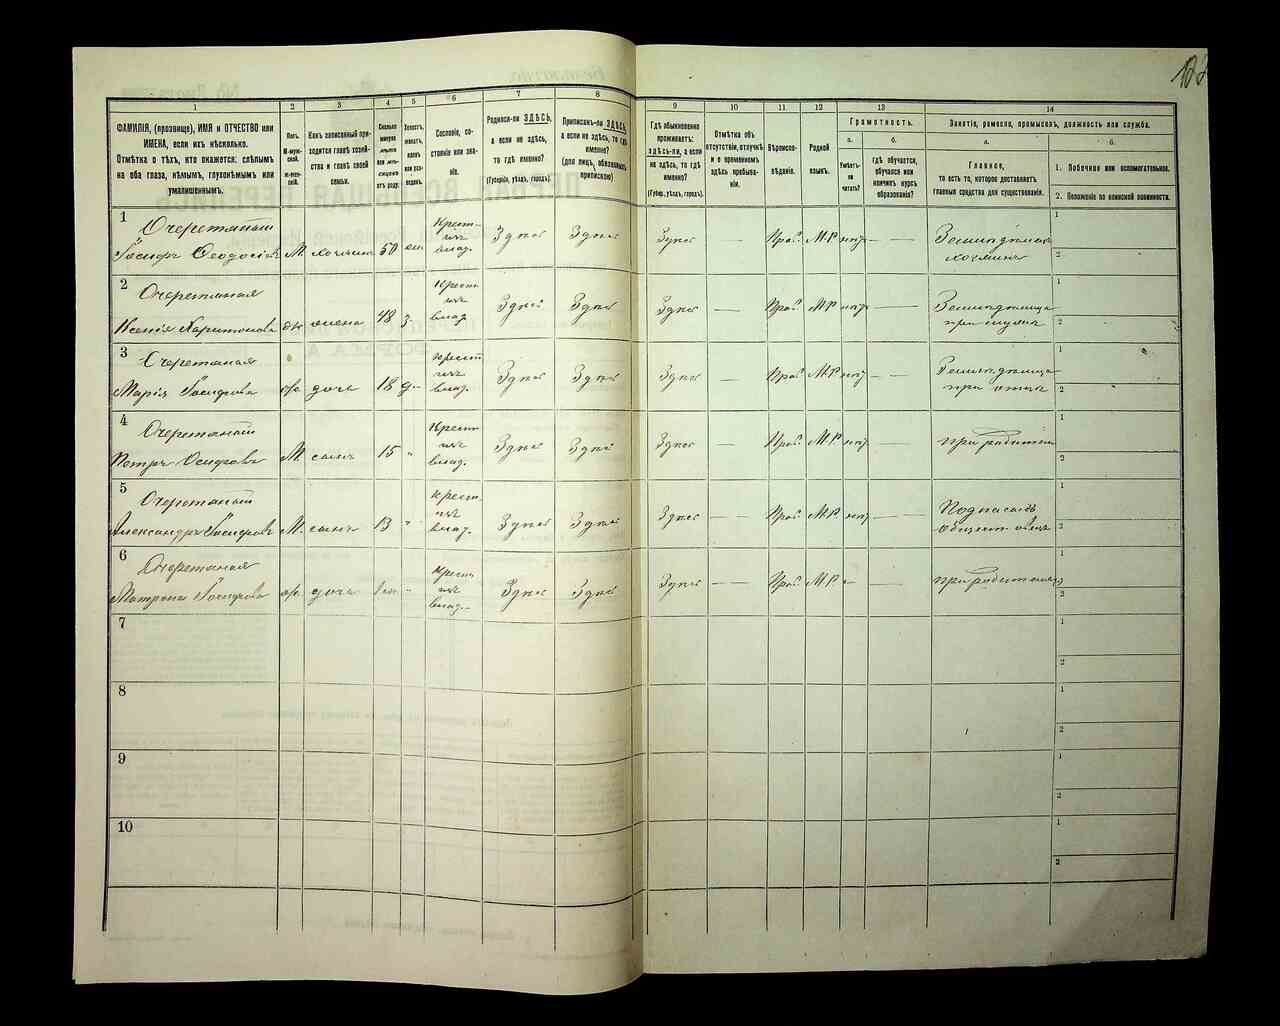 1
2
3
4
5
6
7
8
ФАМИЛІЯ, (прозвище), ИМЯ и ОТЧЕСТВО или ИМЕНА, если ихъ нѣсколько.
Отмѣтка о тѣхъ, кто окажется: слѣпымъ на оба глаза, нѣмымъ, глухонѣмымъ или умалишеннымъ.
Полъ.
М-мужской.
Ж-женскій.
Какъ записанный приходится главѣ хозяйства и главѣ своей семьи.
Сколько минуло лѣтъ или мѣсяцевъ отъ роду.
Холостъ, женатъ, вдовъ или разведенъ.
Сословіе, состояніе или званіе.
Родился-ли ЗДѢСЬ, а если не здѣсь, то гдѣ именно?
(Губернія, уѣздъ, городъ).
Приписанъ-ли ЗДѢСЬ, а если не здѣсь, то гдѣ именно?
(для лицъ, обязанныхъ припискою)
9
10
11
12
13
14
Гдѣ обыкновенно проживаетъ: здѣсь-ли, а если не здѣсь, то гдѣ именно?
(Губер., уѣздъ, городъ).
Отмѣтка объ отсутствіи, отлучкѣ и о временномъ здѣсь пребываніи.
Вѣроисповѣданіе.
Родной языкъ.
Грамотность.
а.
Умѣетъ-ли читать?
б.
гдѣ обучается, обучался или кончилъ курсъ образованія?
Занятіе, ремесло, промыселъ, должность или служба.
а.
Главное,
то есть то, которое доставляетъ главныя средства для существованія.
б.
1. Побочное или вспомогательное.
2. Положеніе по воинской повинности.
1
Очеретяный
Іосифъ Ѳеодосіевъ М хозяинъ 50 жен. Крест. изъ влад. Здѣсь Здѣсь Здѣсь — Прав. М Р нѣтъ — Земледѣлецъ хозяинъ
1
2
2
Очеретяная
Ксенія Харитонова ж жена 48 з. Крест. изъ влад. Здѣсь Здѣсь Здѣсь — Прав. М Р нѣтъ — Земледѣлица при мужѣ
1
2
3
Очеретяная
Марія Іосифова ж дочь 18 д. Крест. изъ влад. Здѣсь Здѣсь Здѣсь — Прав. М Р нѣтъ — Земледѣлица при отцѣ
1
2
4
Очеретяный
Петръ Осифовъ М сынъ 15 " Крест. изъ влад. Здѣсь Здѣсь Здѣсь — Прав. М Р нѣтъ — при родител.
1
2
5
Очеретяный
Александръ Іосифовъ М. сынъ 13 " Крест. изъ влад. Здѣсь Здѣсь Здѣсь — Прав. М Р нѣтъ — Подпасачъ общест. овецъ
1
2
6
Очеретяная
Матрона Іосифова ж дочь " Крест. изъ влад. Здѣсь Здѣсь Здѣсь — Прав. М Р — при родителяхъ
1
2
7
1
2
8
1
2
9
1
2
10
1
2